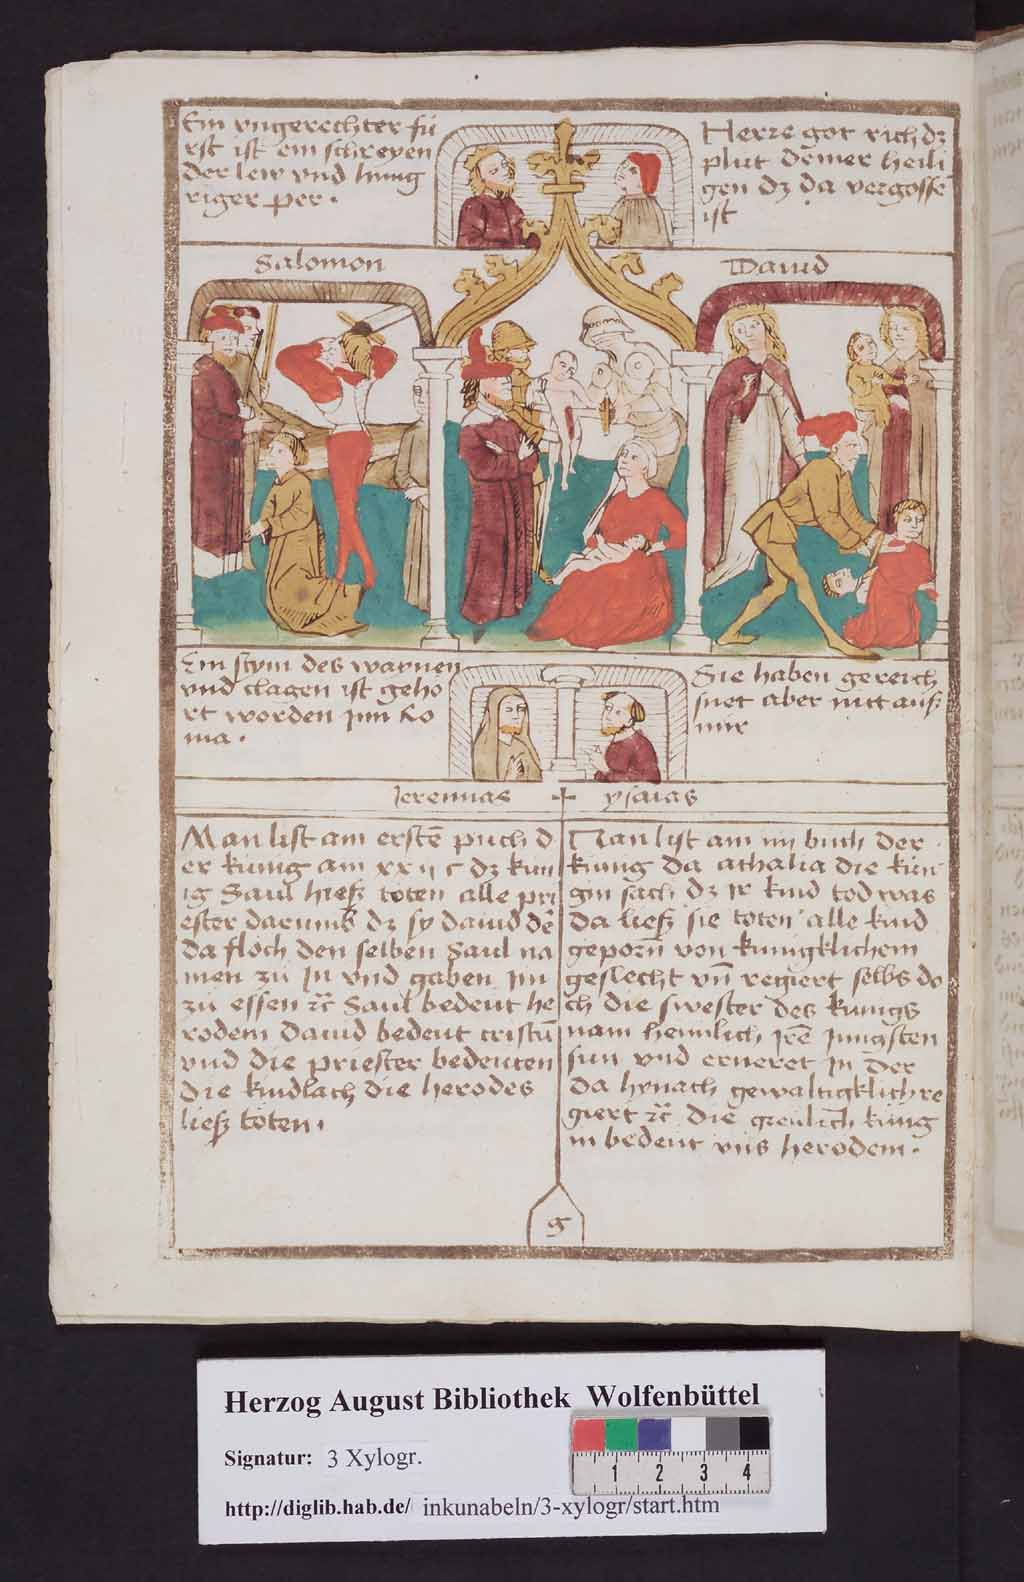 Ein vngerechter fü
rst ist ein schreyen
der lew vnd hung
riger per.
Herre got rich dz
plut deiner heili
gen dz da vergosse
ist
Salomon
Dauid
Ein stym des waynen
vnd clagen ist geho
rt worden jnn Ro
ma.
Sie haben gereich
snet aber nitt auß
mir
Jeremias + ysaias
Man list am erstē puch d
er kunig am xxij c dz kun
ig Saul hieß toten alle pri
ester darumb dz sy dauid dē
da floch den selben Saul na
men zü in vnd gaben im
zü essen ꝛc̄ Saul bedeut he
rodem dauid bedeut cristū
vnd die priester bedeuten
die kindlach die herodes
ließ töten.
Man list am iiij buch der
kunig da athalia die kün
gin sach dz ir kind tod was
da ließ sie toten alle kind
geporn̄ von kunigklichem
geslecht vn̄ regiert selbs do
ch die swester des kunigs
nam heimlich irē jungsten
sun vnd erneret in der
da hynach gewaltigklich re
giert ꝛc̄ die greulich küng
in bedeut vns herodem.
g
Herzog August Bibliothek Wolfenbüttel
Signatur: 3 Xylogr.
1 2 3 4
http://diglib.hab.de/ inkunabeln/3-xylogr/start.htm